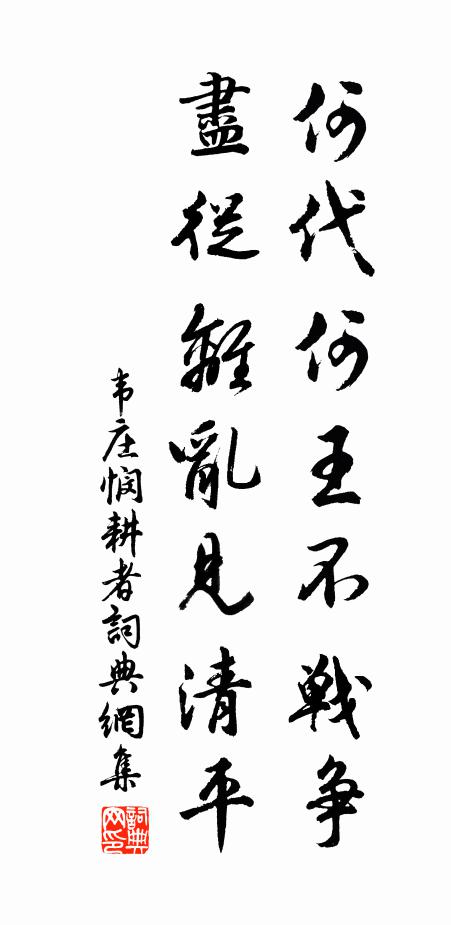 何代何王不戦争
盡從離亂見清平
韦庄悯耕者詞典網集
詞典
网印